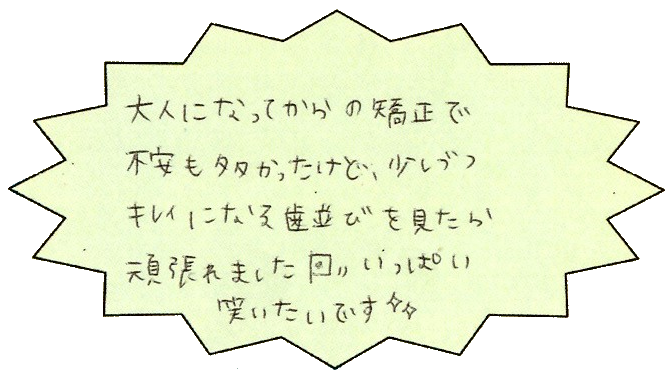 大人になってからの矯正で
不安も多かったけど、少しづつ
キレイになる歯並びを見たら
頑張れました回〃いっぱい
笑いたいです✧✧